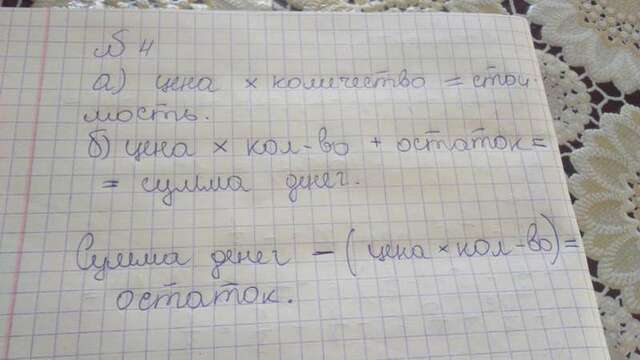 № 4
а) цена × количество = стои-
мость.
б) цена × кол-во + остаток =
= сумма денег.
Сумма денег – ( цена × кол-во) =
остаток.